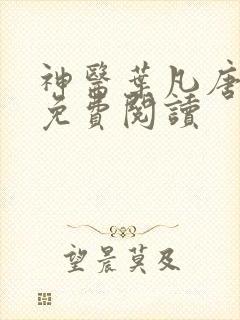 神醫葉凡唐
免費閱讀
望晨莫及